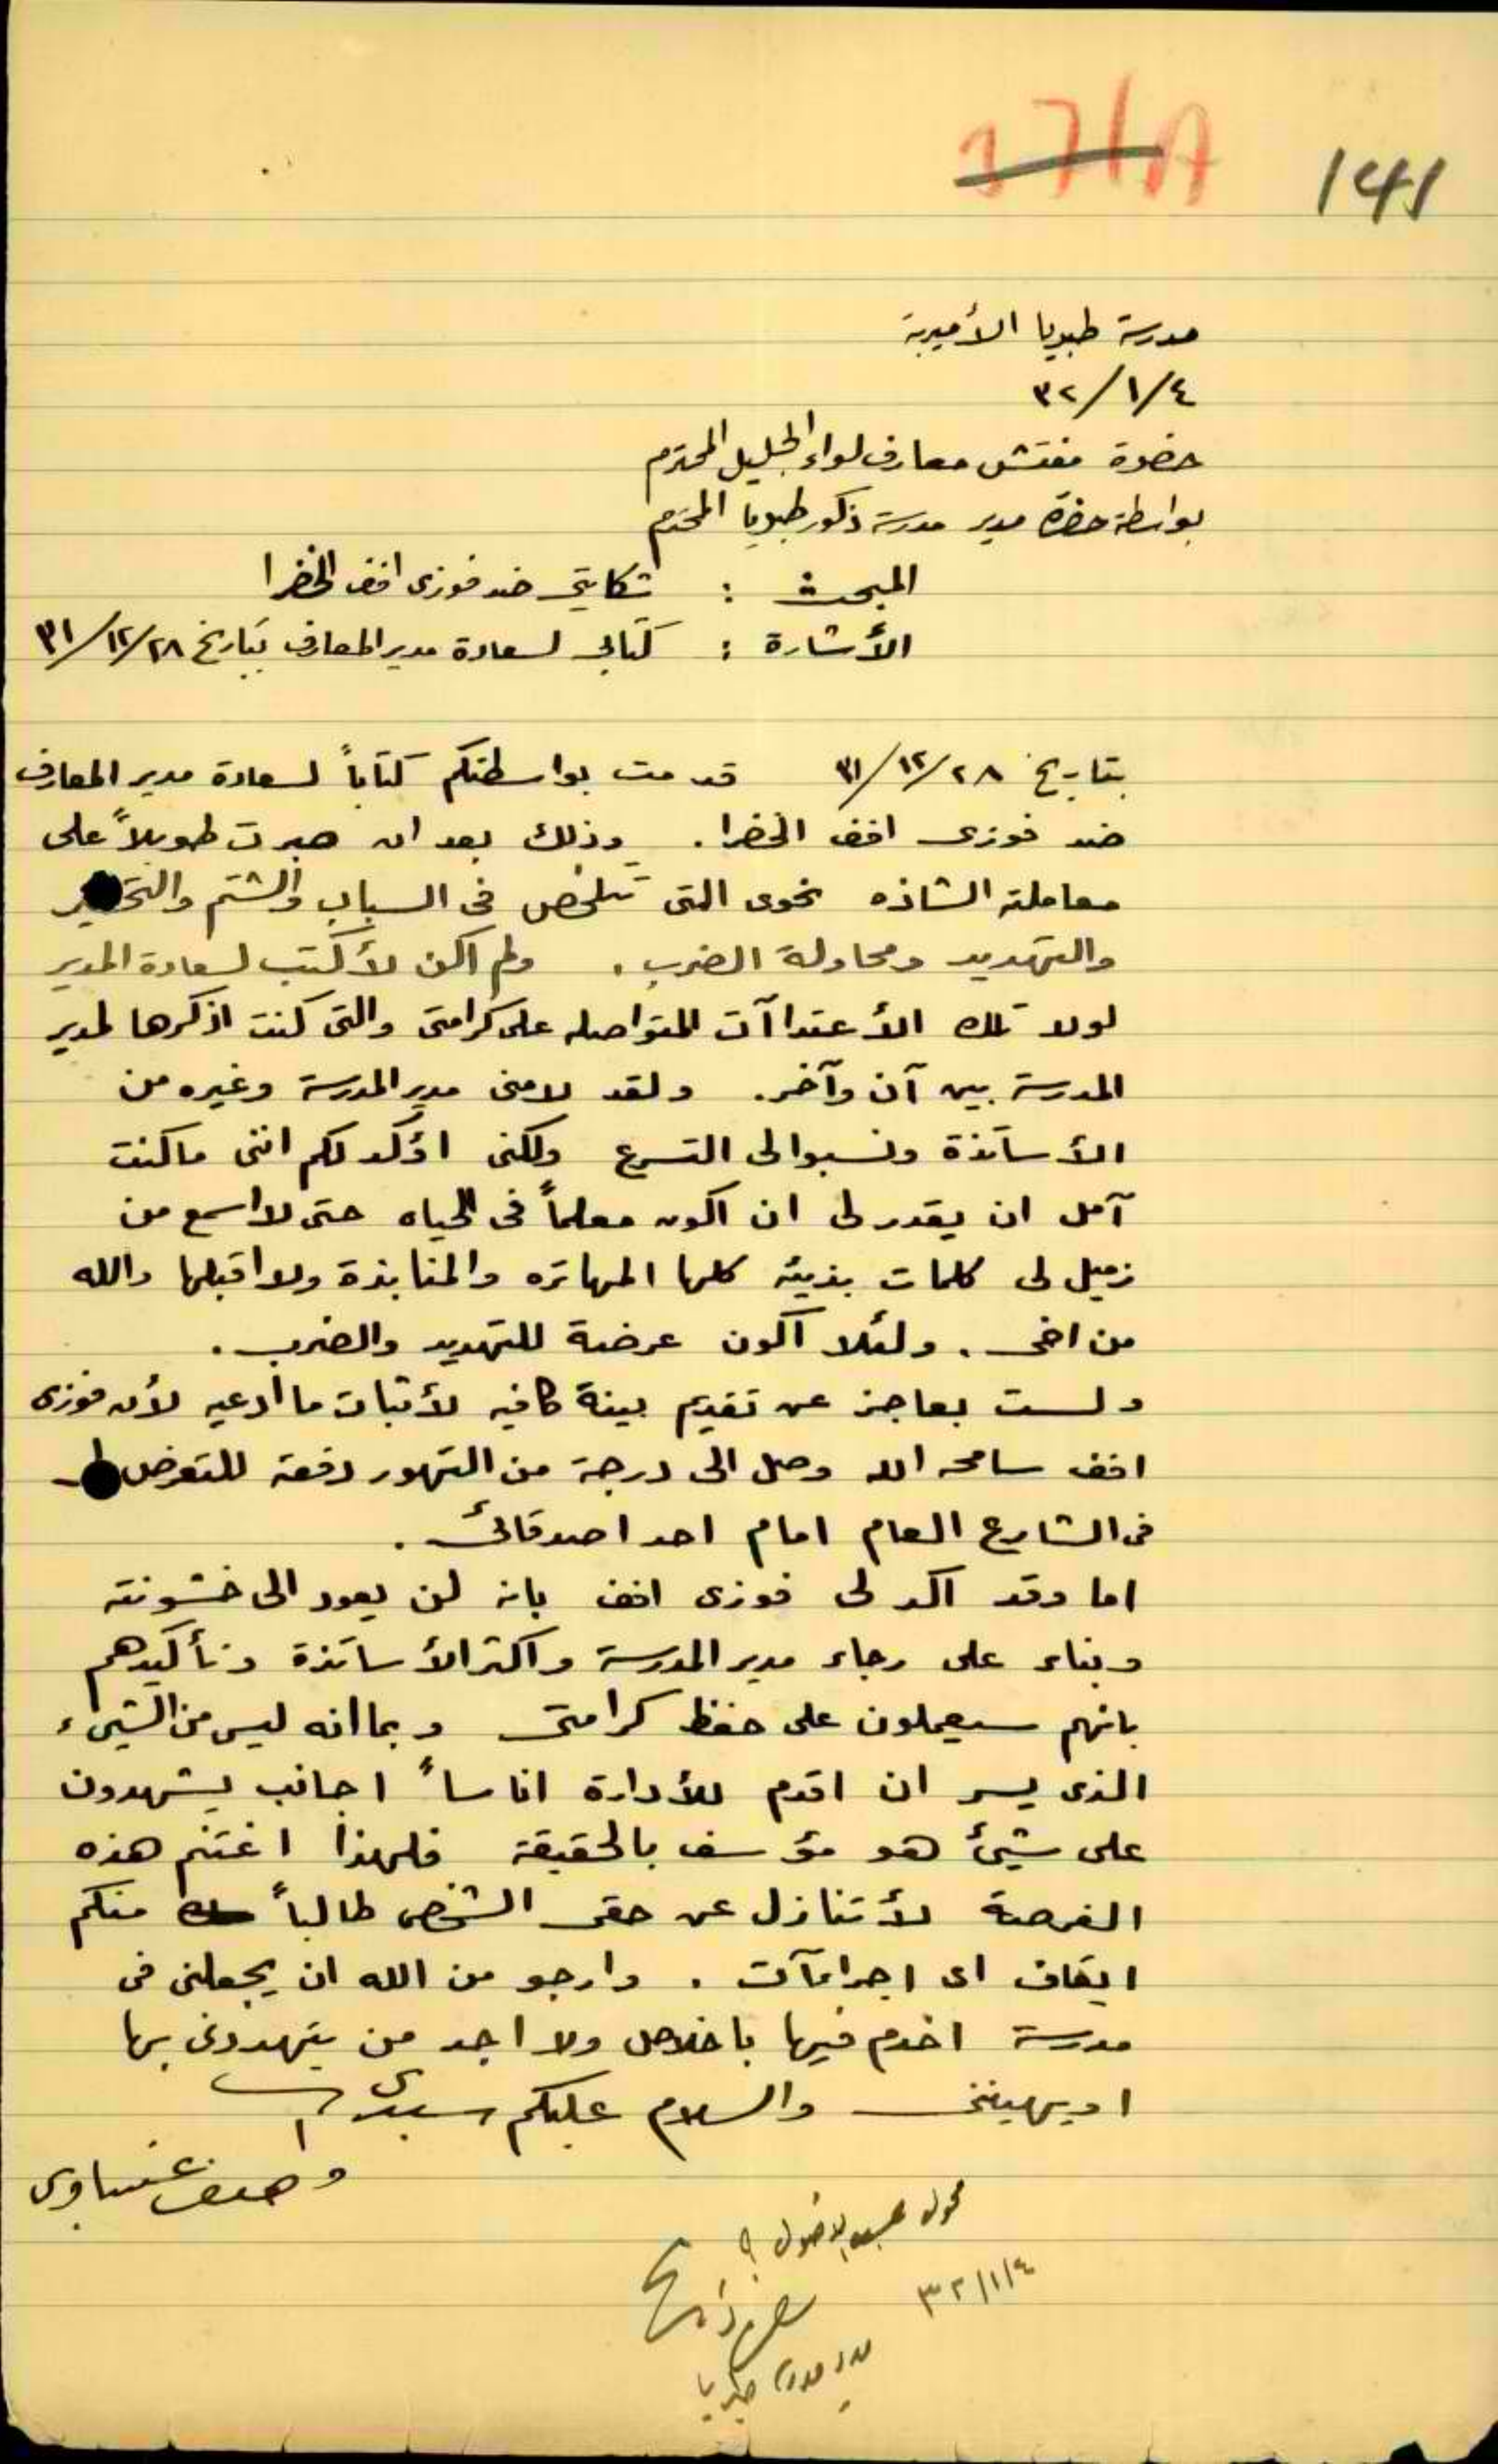 171A 141
مدرسة طبريا الأميرية
٣٢/١/٤
حضرة مفتش معارف لواء الجليل المحترم
بواسطة حضرة مدير مدرسة ذكور طبريا المحترم
المبحث : شكايتي ضد فوزى افف الخضرا
الأشارة : كتابي لسعادة مدير المعارف بتاريخ ٣١/١٢/٢٨
بتاريخ ٣١/١٢/٢٨ قدمت بواسطتكم كتاباً لسعادة مدير المعارف
ضد فوزى افف الخضرا . وذلك بعد ان صبرت طويلاً على
معاملته الشاذه نحوى التى تتلخص في السباب والشتم والتحقير
والتهديد ومحاولة الضرب . ولم اكن لأكتب لسعادة المدير
لولا تلك الأعتداآت المتواصله على كرامتى والتى كنت اذكرها لمدير
المدرسة بين آن وآخر . ولقد لامنى مدير المدرسة وغيره من
الأساتذة ونسبوا لى التسرع ولكنى اؤكد لكم اننى ما كنت
آمل ان يقدر لى ان اكون معلماً في الحياه حتى لا اسمع من
زميل لى كلمات بذيئة كلها المهاتره والمنابذة ولا اقبلها والله
من اخى . ولئلا اكون عرضة للتهديد والضرب .
ولست بعاجز عن تقديم بينة كافيه لأثبات ما أدعيه لأن فوزى
افف سامحه الله وصل الى درجة من التهور دفعته للتعرض لى
فى الشارع العام امام احد اصدقائى .
اما وقد اكد لى فوزى افف بانه لن يعود الى خشونته
وبناء على رجاء مدير المدرسة واكثر الأساتذة وتأكيدهم
بانهم سيعملون على حفظ كرامتى وبما انه ليس من الشيء
الذى يسر ان اقدم للأدارة اناساً اجانب يشهدون
على شيئ هو مؤسف بالحقيقة فلهذا اغتنم هذه
الفرصة لأتنازل عن حقى الشخصى طالباً منكم
ايقاف اى اجراآت . وارجو من الله ان يجعلنى فى
مدرسة اخدم فيها باخلاص ولا اجد من يتهددنى بها
او يهيننى والسلام عليكم سيدى
واصف عنبتاوى
محول حسب الاصول
٣٢/١/٤
مدير مدرسة طبريا